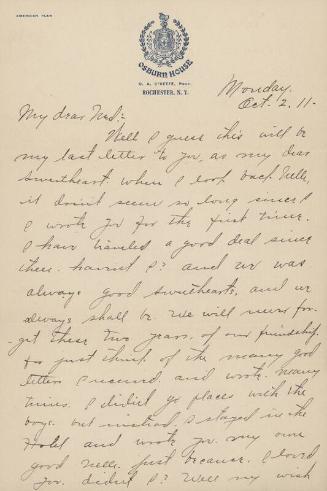 AMERICAN PLAN
OSBURN HOUSE
ROCHESTER, N.Y.
Monday.
Oct. 2. 11-
My dear Ned:-
Well I guess this will be
my last letter to yo, as my dear
Sweetheart. when I look back Nell,
it don't seem so long since I
I wrote yo for the first time.
I have traveled a good deal since
then. havent I? and we was
always good sweethearts, and we
always shall be. We will never for-
-get these two years, of our friendship.
to just think of the many good
letters I received and wrote. many
times I didn't go places with the
boys. but instead I stayed in the
Hotel and wrote yo. my own
good Nell. just because I loved
yo. didnt I? Well my wish